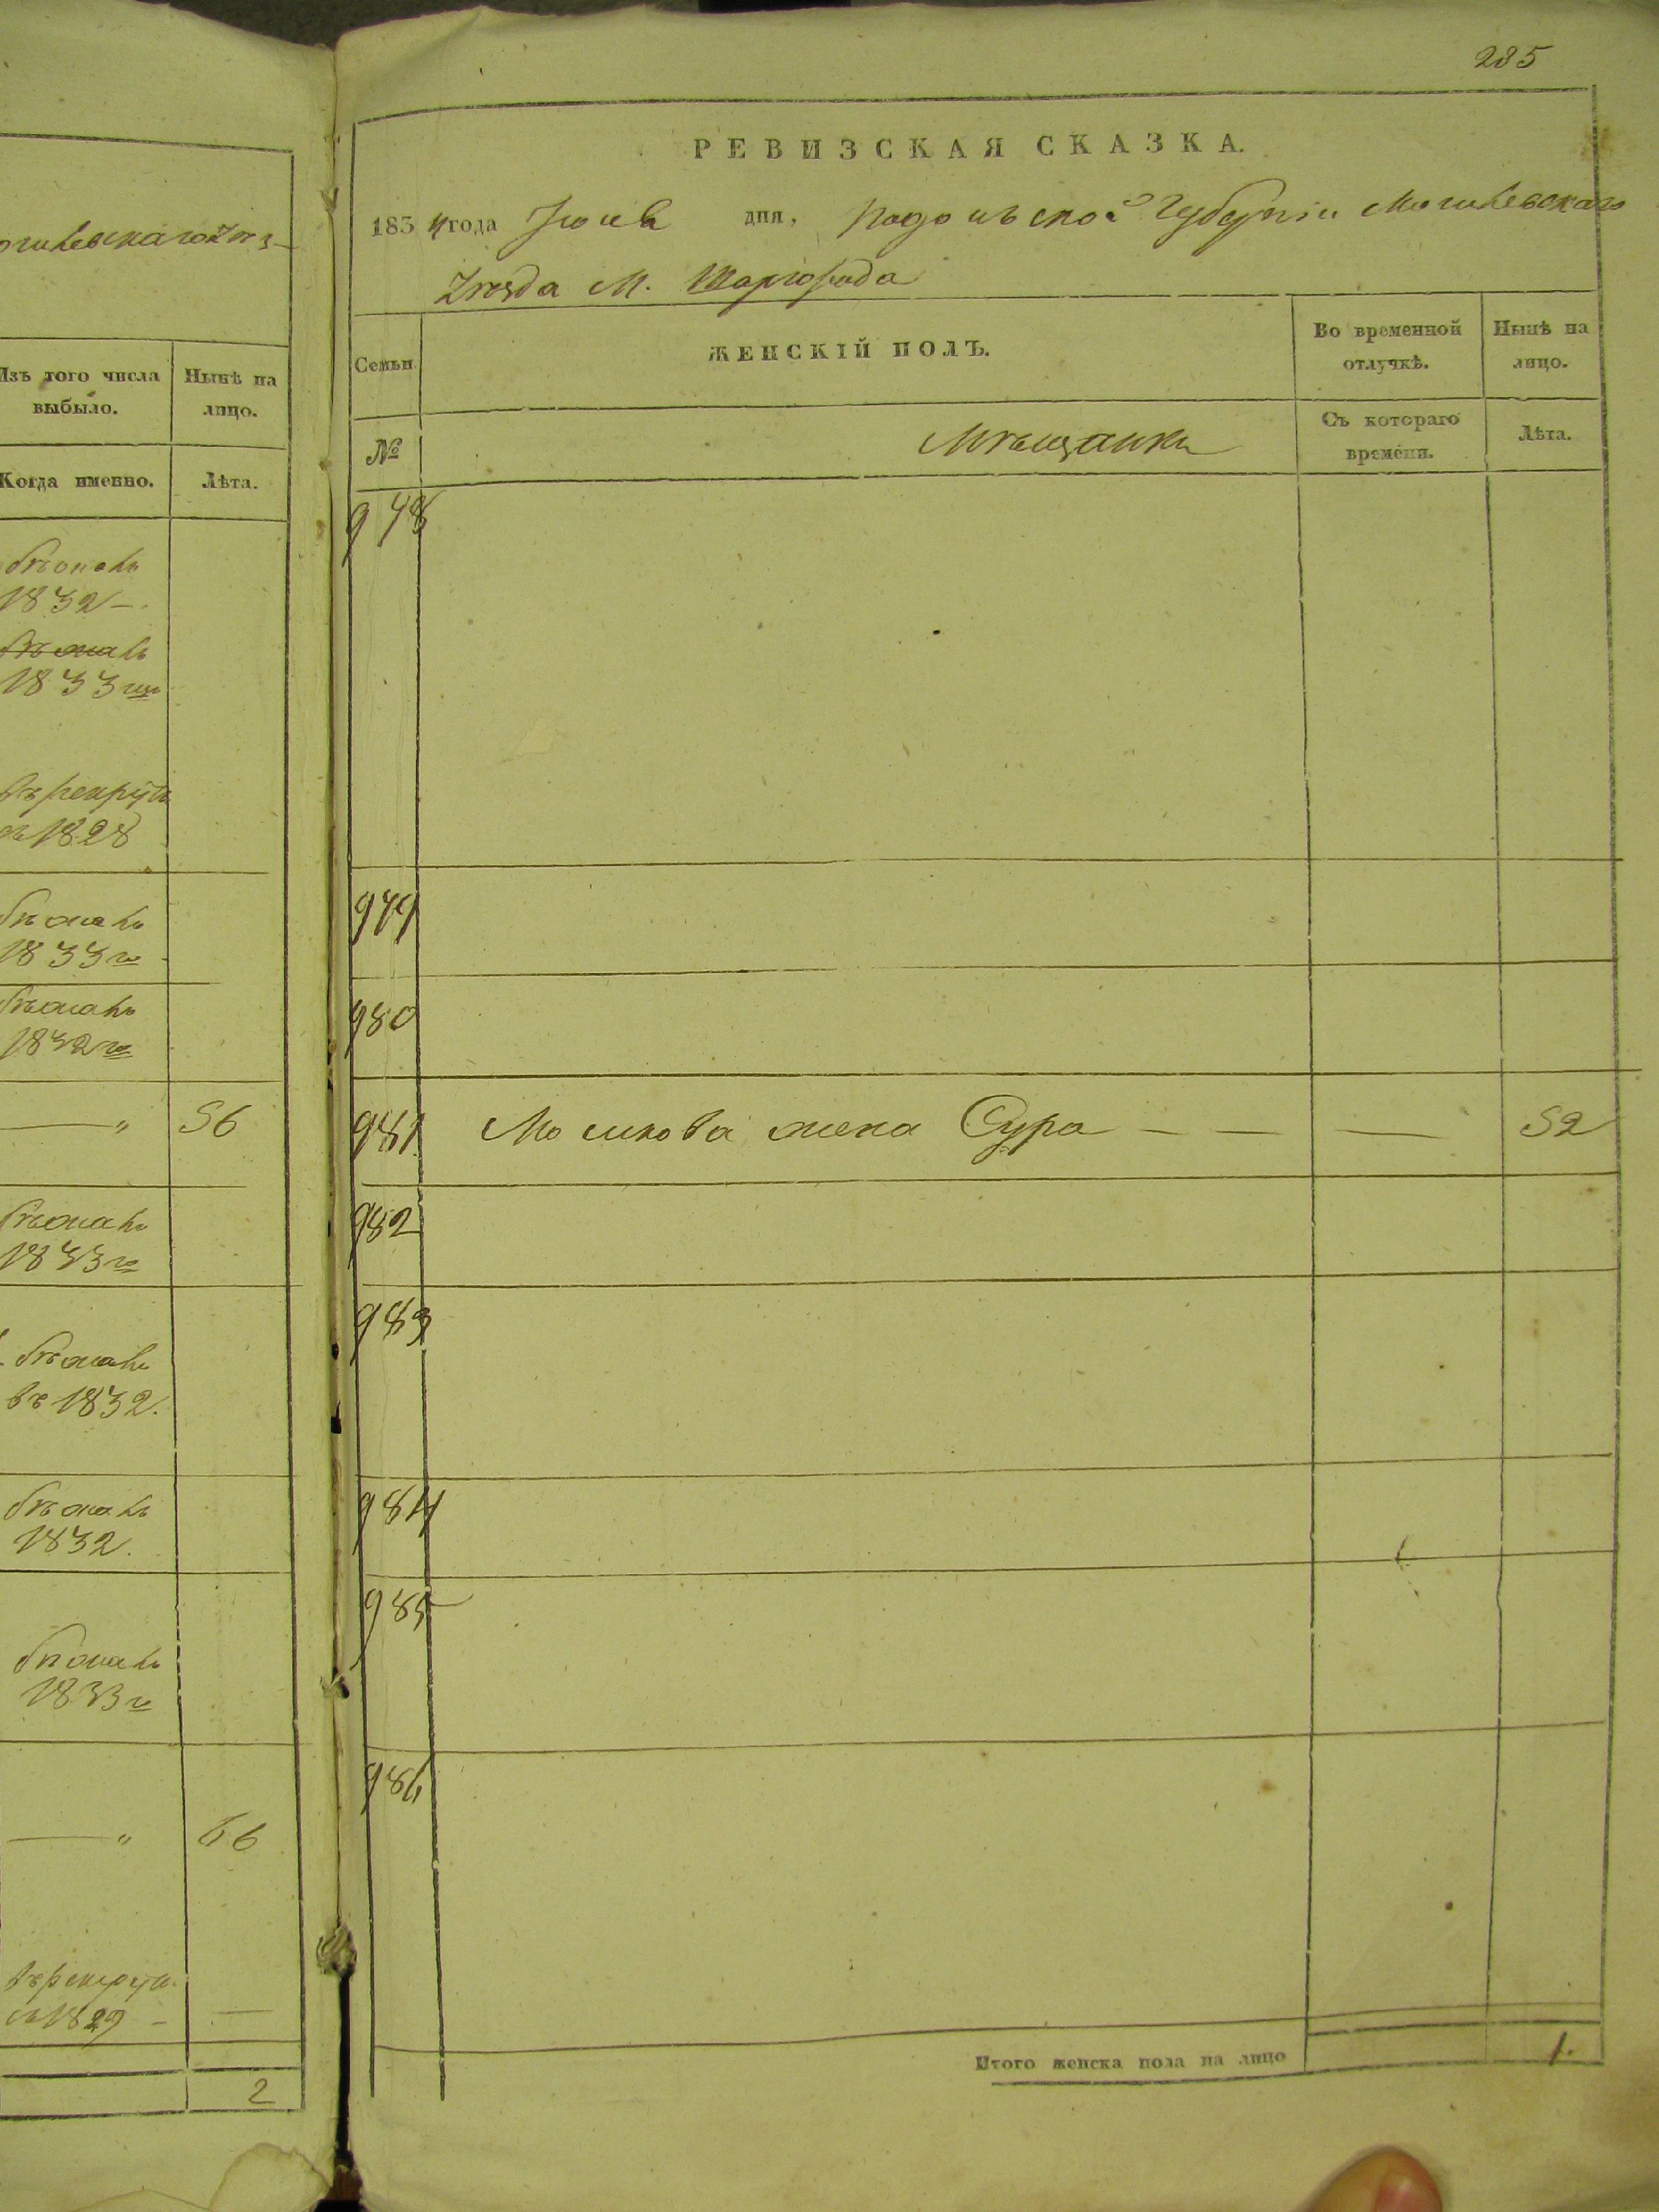 огилевскаго Уѣз-
Изъ того числа выбыло.
Нынѣ на лицо.
Когда именно.
Лѣта.
бѣжалъ
1832 –
бѣжалъ
1833го
въ рекруты
въ 1828
бѣжалъ
1833го
бѣжалъ
1832го
— „ 56
бѣжалъ
1833го
бѣжалъ
въ 1832.
бѣжалъ
1832.
бѣжалъ
1833го
— „ 66
въ рекрут.
въ 1829 – —
2
285
РЕВИЗСКАЯ СКАЗКА.
1834 года Июня дня, Подольской Губерніи Могилевскаго
Уѣзда М. Шаргорода
Семьи
ЖЕНСКІЙ ПОЛЪ.
Во временной отлучкѣ.
Нынѣ на лицо.
№
Мѣщанки
Съ котораго времени.
Лѣта.
978
979
980
981 Мошкова жена Сура – — — 52
982
983
984
985
986
Итого женска пола на лицо 1.